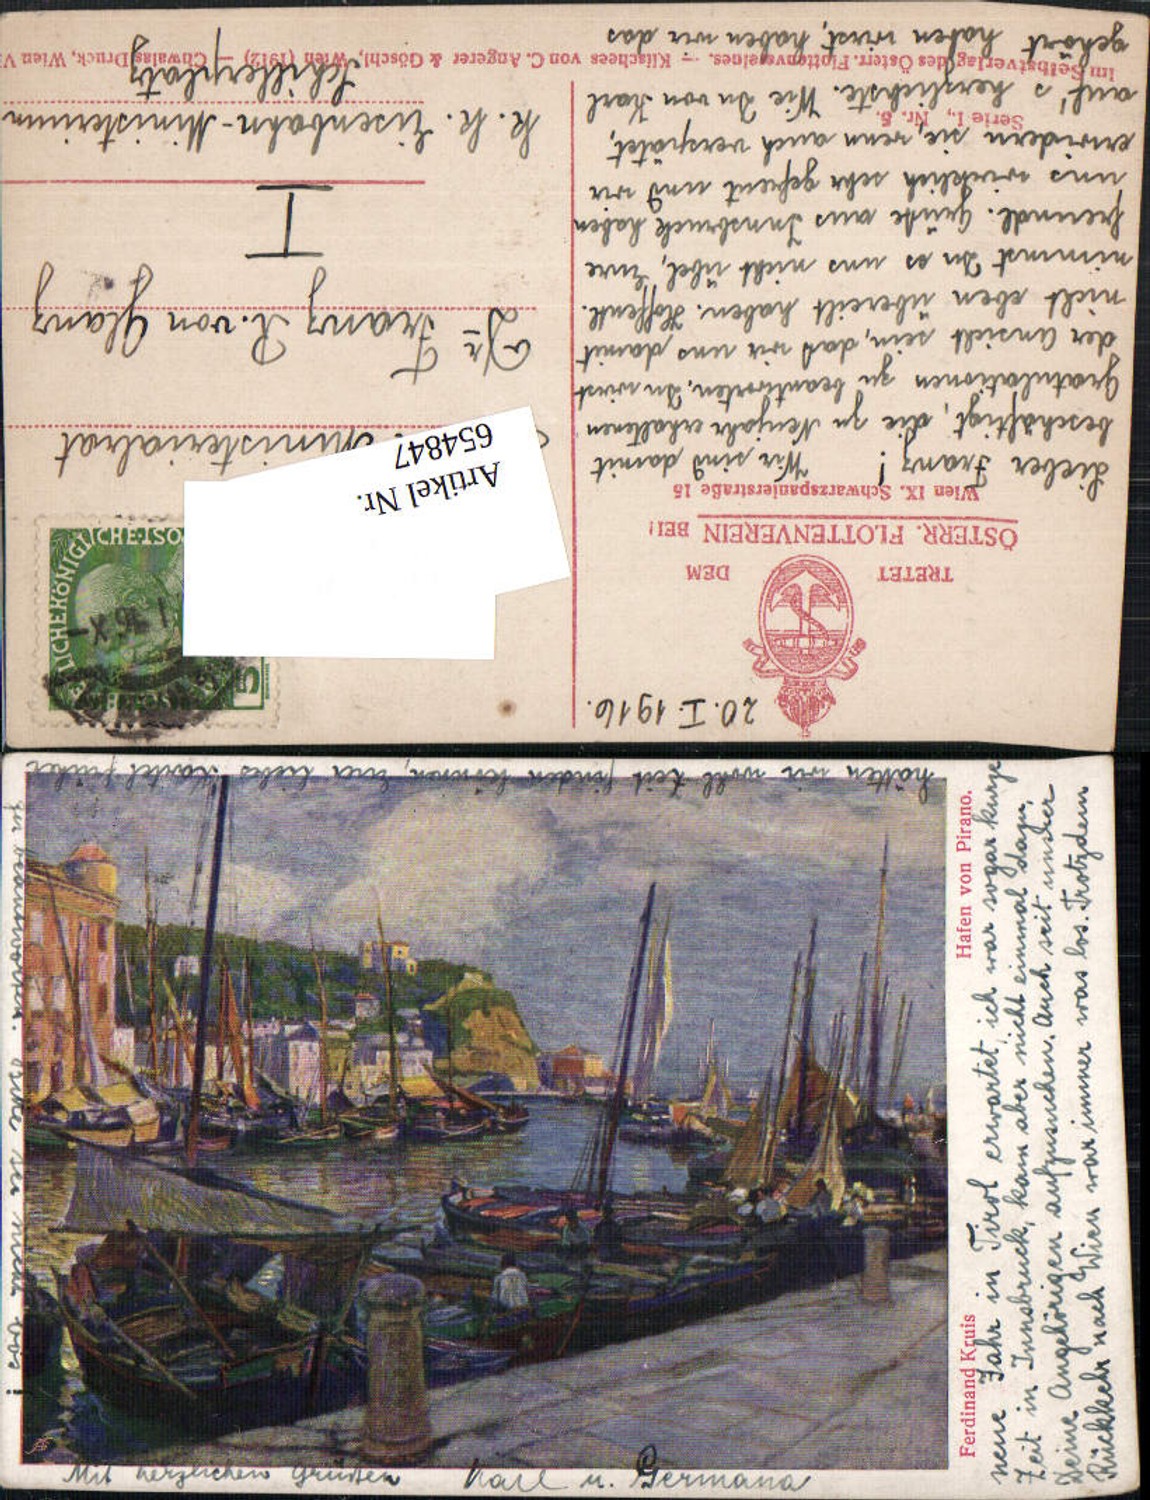 20. I. 1916.
TRETET DEM
ÖSTERR. FLOTTENVEREIN BEI!
Wien IX. Schwarzspanierstraße 15
Lieber Franz! Wir sind damit
beschäftigt, die zu Neujahr erhaltenen
Gratulationen zu beantworten. Du wirst
der Ansicht sein, daß wir uns damit
nicht eben übereilt haben. Hoffentl.
nimmst Du es uns nicht übel, Eure
freundl. Grüße aus Innsbruck haben
uns wirklich sehr gefreut und wir
erwidern sie, wenn auch verspätet,
Serie I., Nr. 8.
auf's herzlichste. Wie Du von Karl
gehört haben wirst, haben wir das
Im Selbstverlag des Österr. Flottenvereines. — Klischees von C. Angerer & Göschl, Wien (1912) — Chwalas Druck, Wien V
5
Artikel Nr.
654847
Ministerialrat
Dr. Franz R. von Glanz
I
K. K. Eisenbahn-Ministerium
Schillerplatz
Ferdinand Kruis
Hafen von Pirano.
neue Jahr in Tirol erwartet, ich war sogar kurze
Zeit in Innsbruck, kam aber nicht einmal dazu,
Deine Angehörigen aufzusuchen. Auch seit unsrer
Rückkehr nach Wien war immer was los. Trotzdem
hätten wir wohl Zeit finden können, Euer liebes Kartel früher
zu beantworten. Bitte sei nicht bös!
Mit herzlichen Grüßen Karl u. Germana